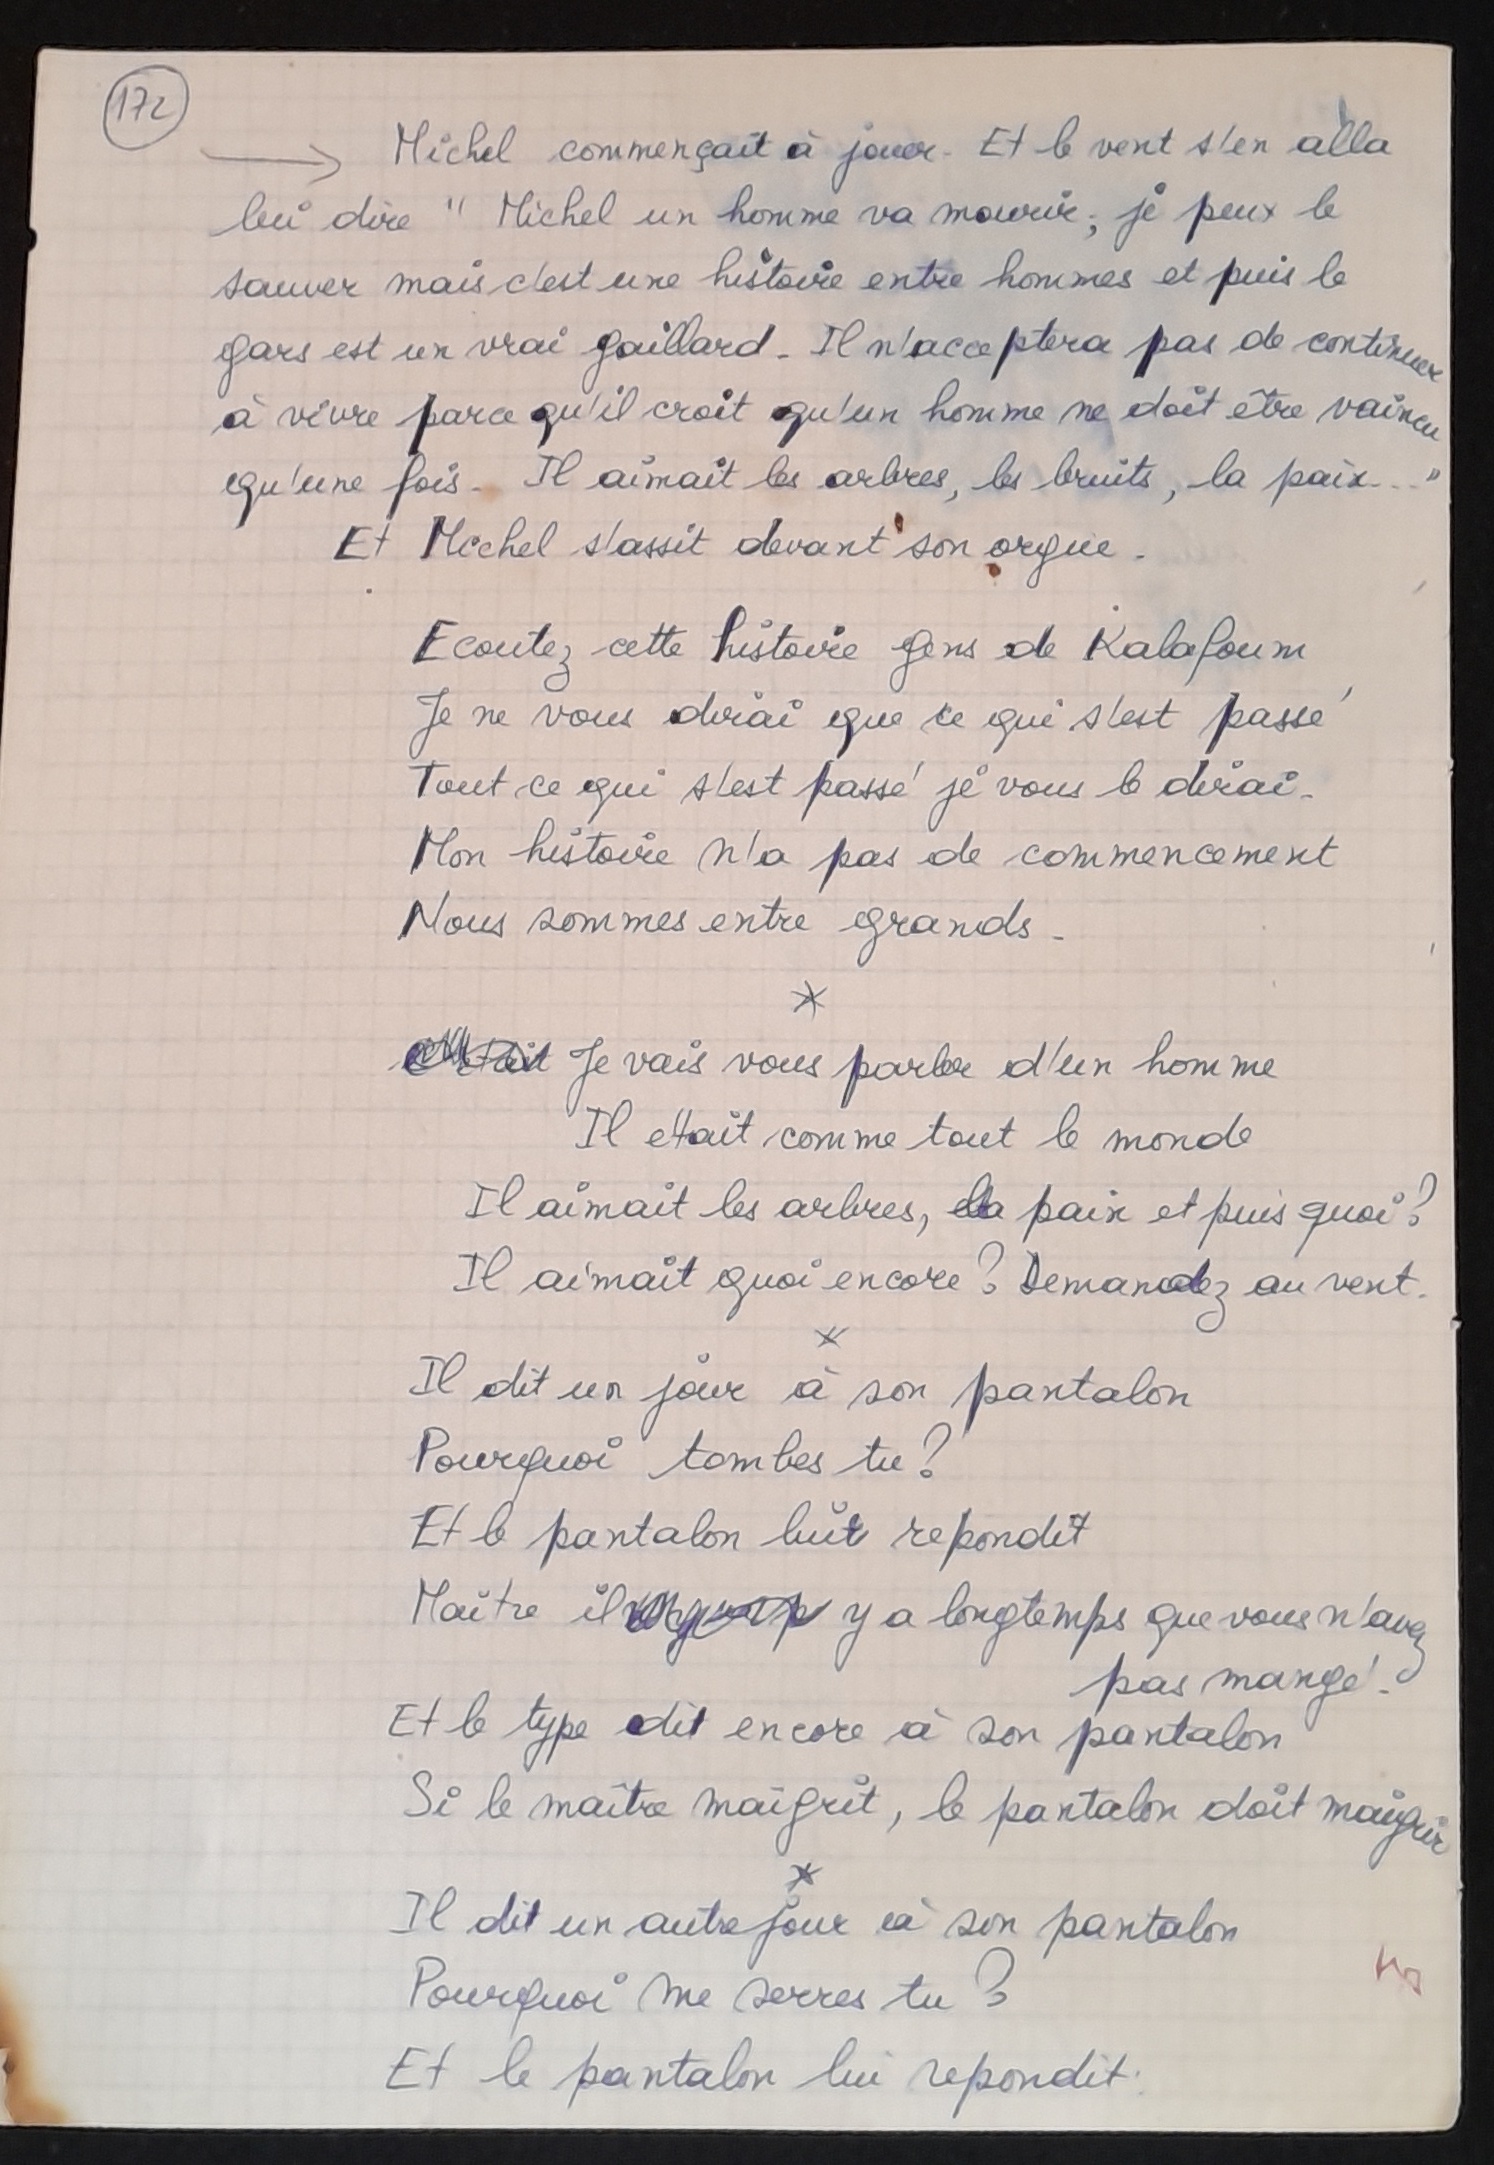 172
→ Michel commençait à jouer. Et le vent s'en alla
lui dire " Michel un homme va mourir, je peux le
sauver mais c'est une histoire entre hommes et puis le
gars est un vrai gaillard. Il n'acceptera pas de continuer
à vivre parce qu'il croit qu'un homme ne doit être vaincu
qu'une fois. Il aimait les arbres, les bruits, la paix..."
Et Michel s'assit devant son orgue.
Ecoutez cette histoire gens de Kalafoum
Je ne vous dirai que ce qui s'est passé
Tout ce qui s'est passé je vous le dirai.
Mon histoire n'a pas de commencement
Nous sommes entre grands.
*
Je vais vous parler d'un homme
Il etait comme tout le monde
Il aimait les arbres, la paix et puis quoi?
Il aimait quoi encore? Demandez au vent.
*
Il dit un jour à son pantalon
Pourquoi tombes tu?
Et le pantalon lui repondit
Maître il y a longtemps que vous n'avez
pas mangé.
Et le type dit encore à son pantalon
Si le maître maigrit, le pantalon doit maigrir
*
Il dit un autre jour à son pantalon
Pourquoi me serres tu?
Et le pantalon lui repondit: